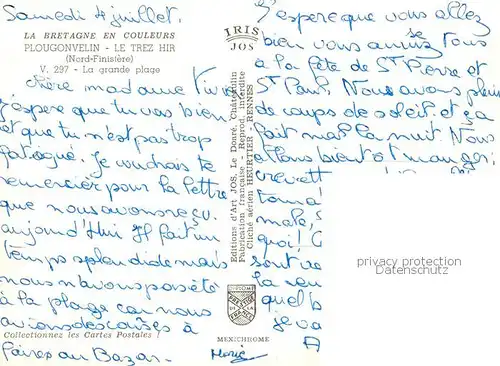 Samedi 4 juillet.
LA BRETAGNE EN COULEURS
PLOUGONVELIN - LE TREZ HIR
(Nord-Finistère)
V. 297 - La grande plage
chère madame
j'espère que tu vas bien
et que tu n'est pas trop
fatiguée. Je voudrais te
remercier pour la lettre
que nous avons reçu.
aujourd'Hui il fait un
temps splendide mais
nous n'avons pas été
à la plage car nous
avions des courses à
Collectionnez les Cartes Postales !
faires au Bazar.
IRIS
JOS
Editions d'Art JOS, Le Doaré, Châteaulin
Fabrication française - Reprod. interdite
Cliché aérien HEURTIER - RENNES
MEXICHROME
J'espere que vous allez
bien vous amusez tous
à la fête de St Pierre et
St Paul. Nous avons plein
de coups de soleil et ça
fait mal la nuit. Nous
allons bientôt manger
crevett
toma
male
quoi! C
sont ve
la
quel b
je va
A
privacy protection
Datenschutz